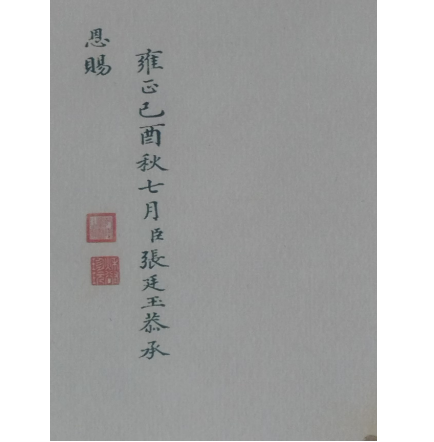 雍正己酉秋七月臣張廷玉恭承
恩賜